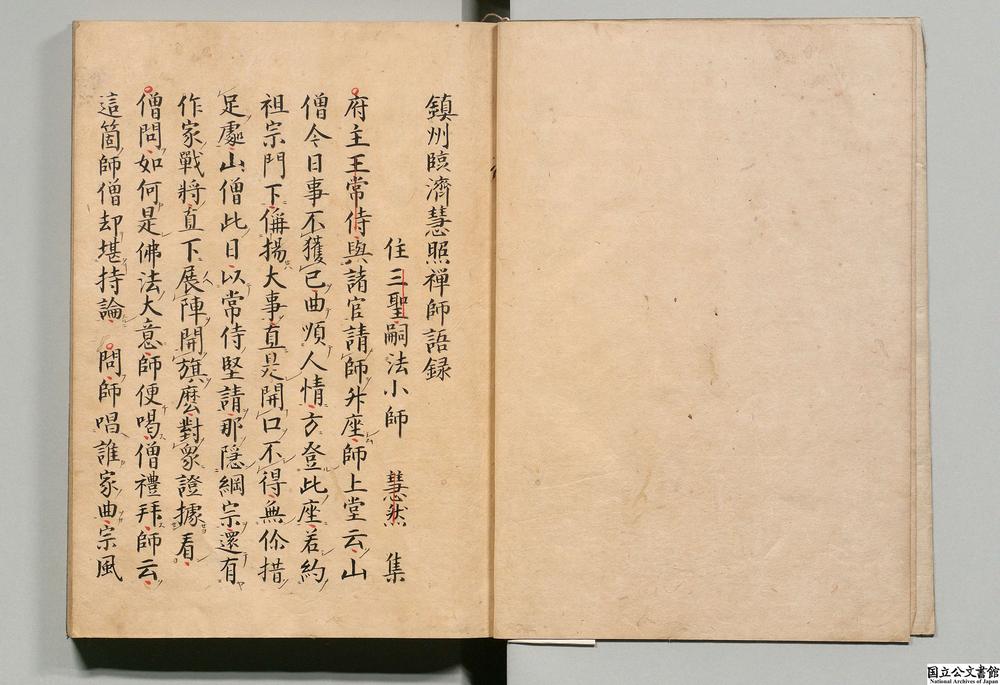 鎮州臨濟慧照禅師語録
住三聖嗣法小師 慧然 集
府主王常侍與諸官請師升座師上堂云山
僧今日事不獲已曲順人情方登此座若約
祖宗門下偁揚大事直是開口不得無你措
足處山僧此日以常侍堅請那隠綱宗還有
作家戰將直下展陣開旗麽對衆證據看
僧問如何是佛法大意師便喝僧禮拜師云
這箇師僧却堪持論 問師唱誰家曲宗風
国立公文書館
National Archives of Japan